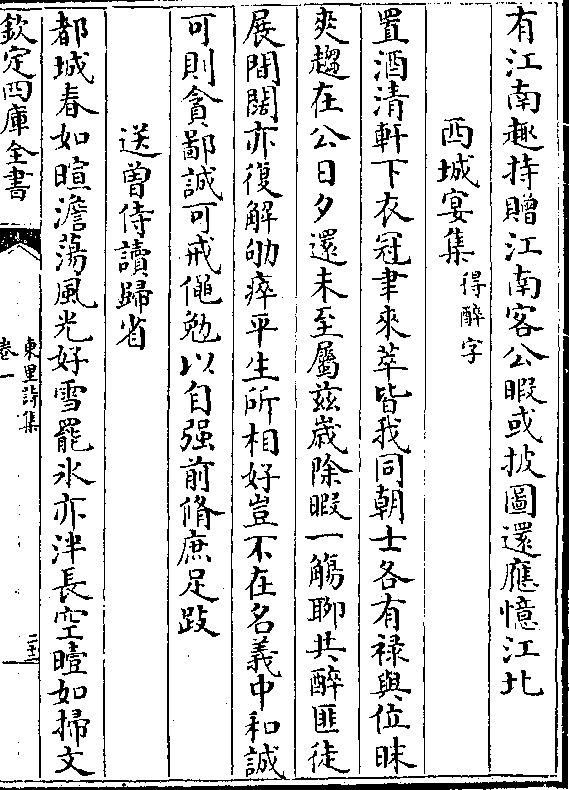 有江南趣持贈江南客公暇或披圖還應憶江北
西城宴集得醉字
置酒清軒下衣冠聿來萃皆我同朝士各有祿與位昧
爽趨在公日夕還未至屬兹歲除暇一觴聊共醉匪徒
展閒闊亦復解劬瘁平生所相好豈不在名義中和誠
可則貪鄙誠可戒僶勉以自强前脩庶足跂
送曾侍讀歸省
都城春如暄澹蕩風光好雪罷氷亦泮長空曀如掃文
欽定四庫全書
東里詩集
卷一